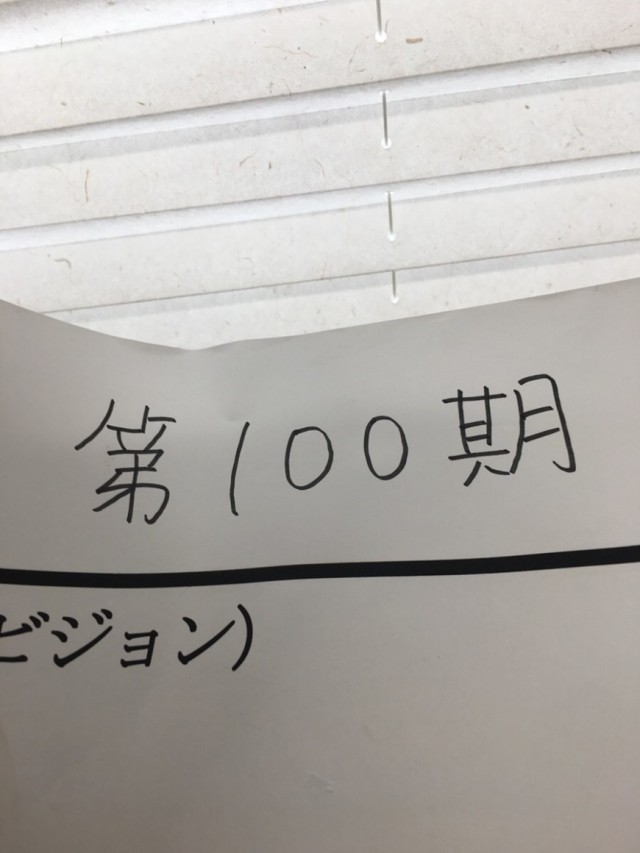 第100期
ビジョン)